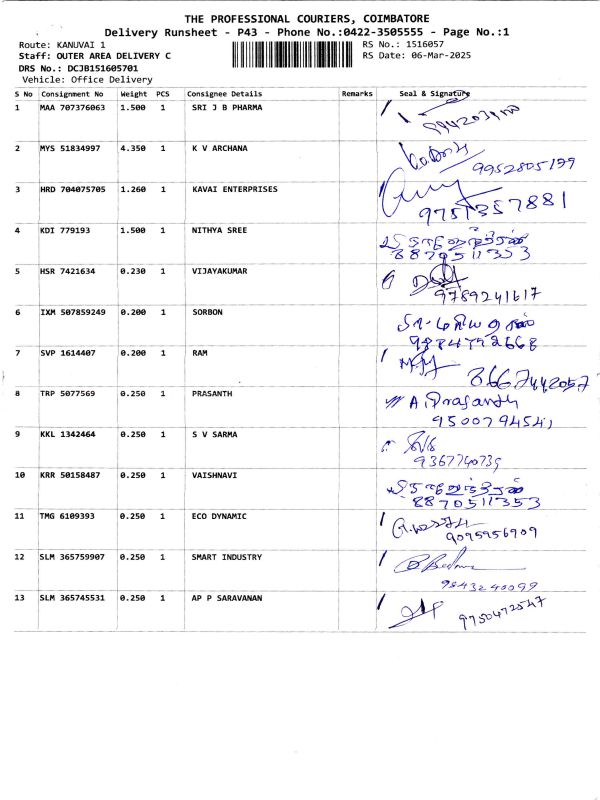 THE PROFESSIONAL COURIERS, COIMBATORE
Delivery Runsheet - P43 - Phone No.:0422-3505555 - Page No.:1
Route: KANUVAI 1 RS No.: 1516057
Staff: OUTER AREA DELIVERY C RS Date: 06-Mar-2025
DRS No.: DCJB151605701
Vehicle: Office Delivery
S No Consignment No Weight PCS Consignee Details Remarks Seal & Signature
1 MAA 707376063 1.500 1 SRI J B PHARMA
2 MYS 51834997 4.350 1 K V ARCHANA
9952805199
3 HRD 704075705 1.260 1 KAVAI ENTERPRISES
9751357881
4 KDI 779193 1.500 1 NITHYA SREE
8870511353
5 HSR 7421634 0.230 1 VIJAYAKUMAR
9789241617
6 IXM 507859249 0.200 1 SORBON
9884792668
7 SVP 1614407 0.200 1 RAM
8667442057
8 TRP 5077569 0.250 1 PRASANTH
A. Prasanth
9500794541
9 KKL 1342464 0.250 1 S V SARMA
9367740735
10 KRR 50158487 0.250 1 VAISHNAVI
8870511353
11 TMG 6109393 0.250 1 ECO DYNAMIC
9095956909
12 SLM 365759907 0.250 1 SMART INDUSTRY
9843240099
13 SLM 365745531 0.250 1 AP P SARAVANAN
9750472547